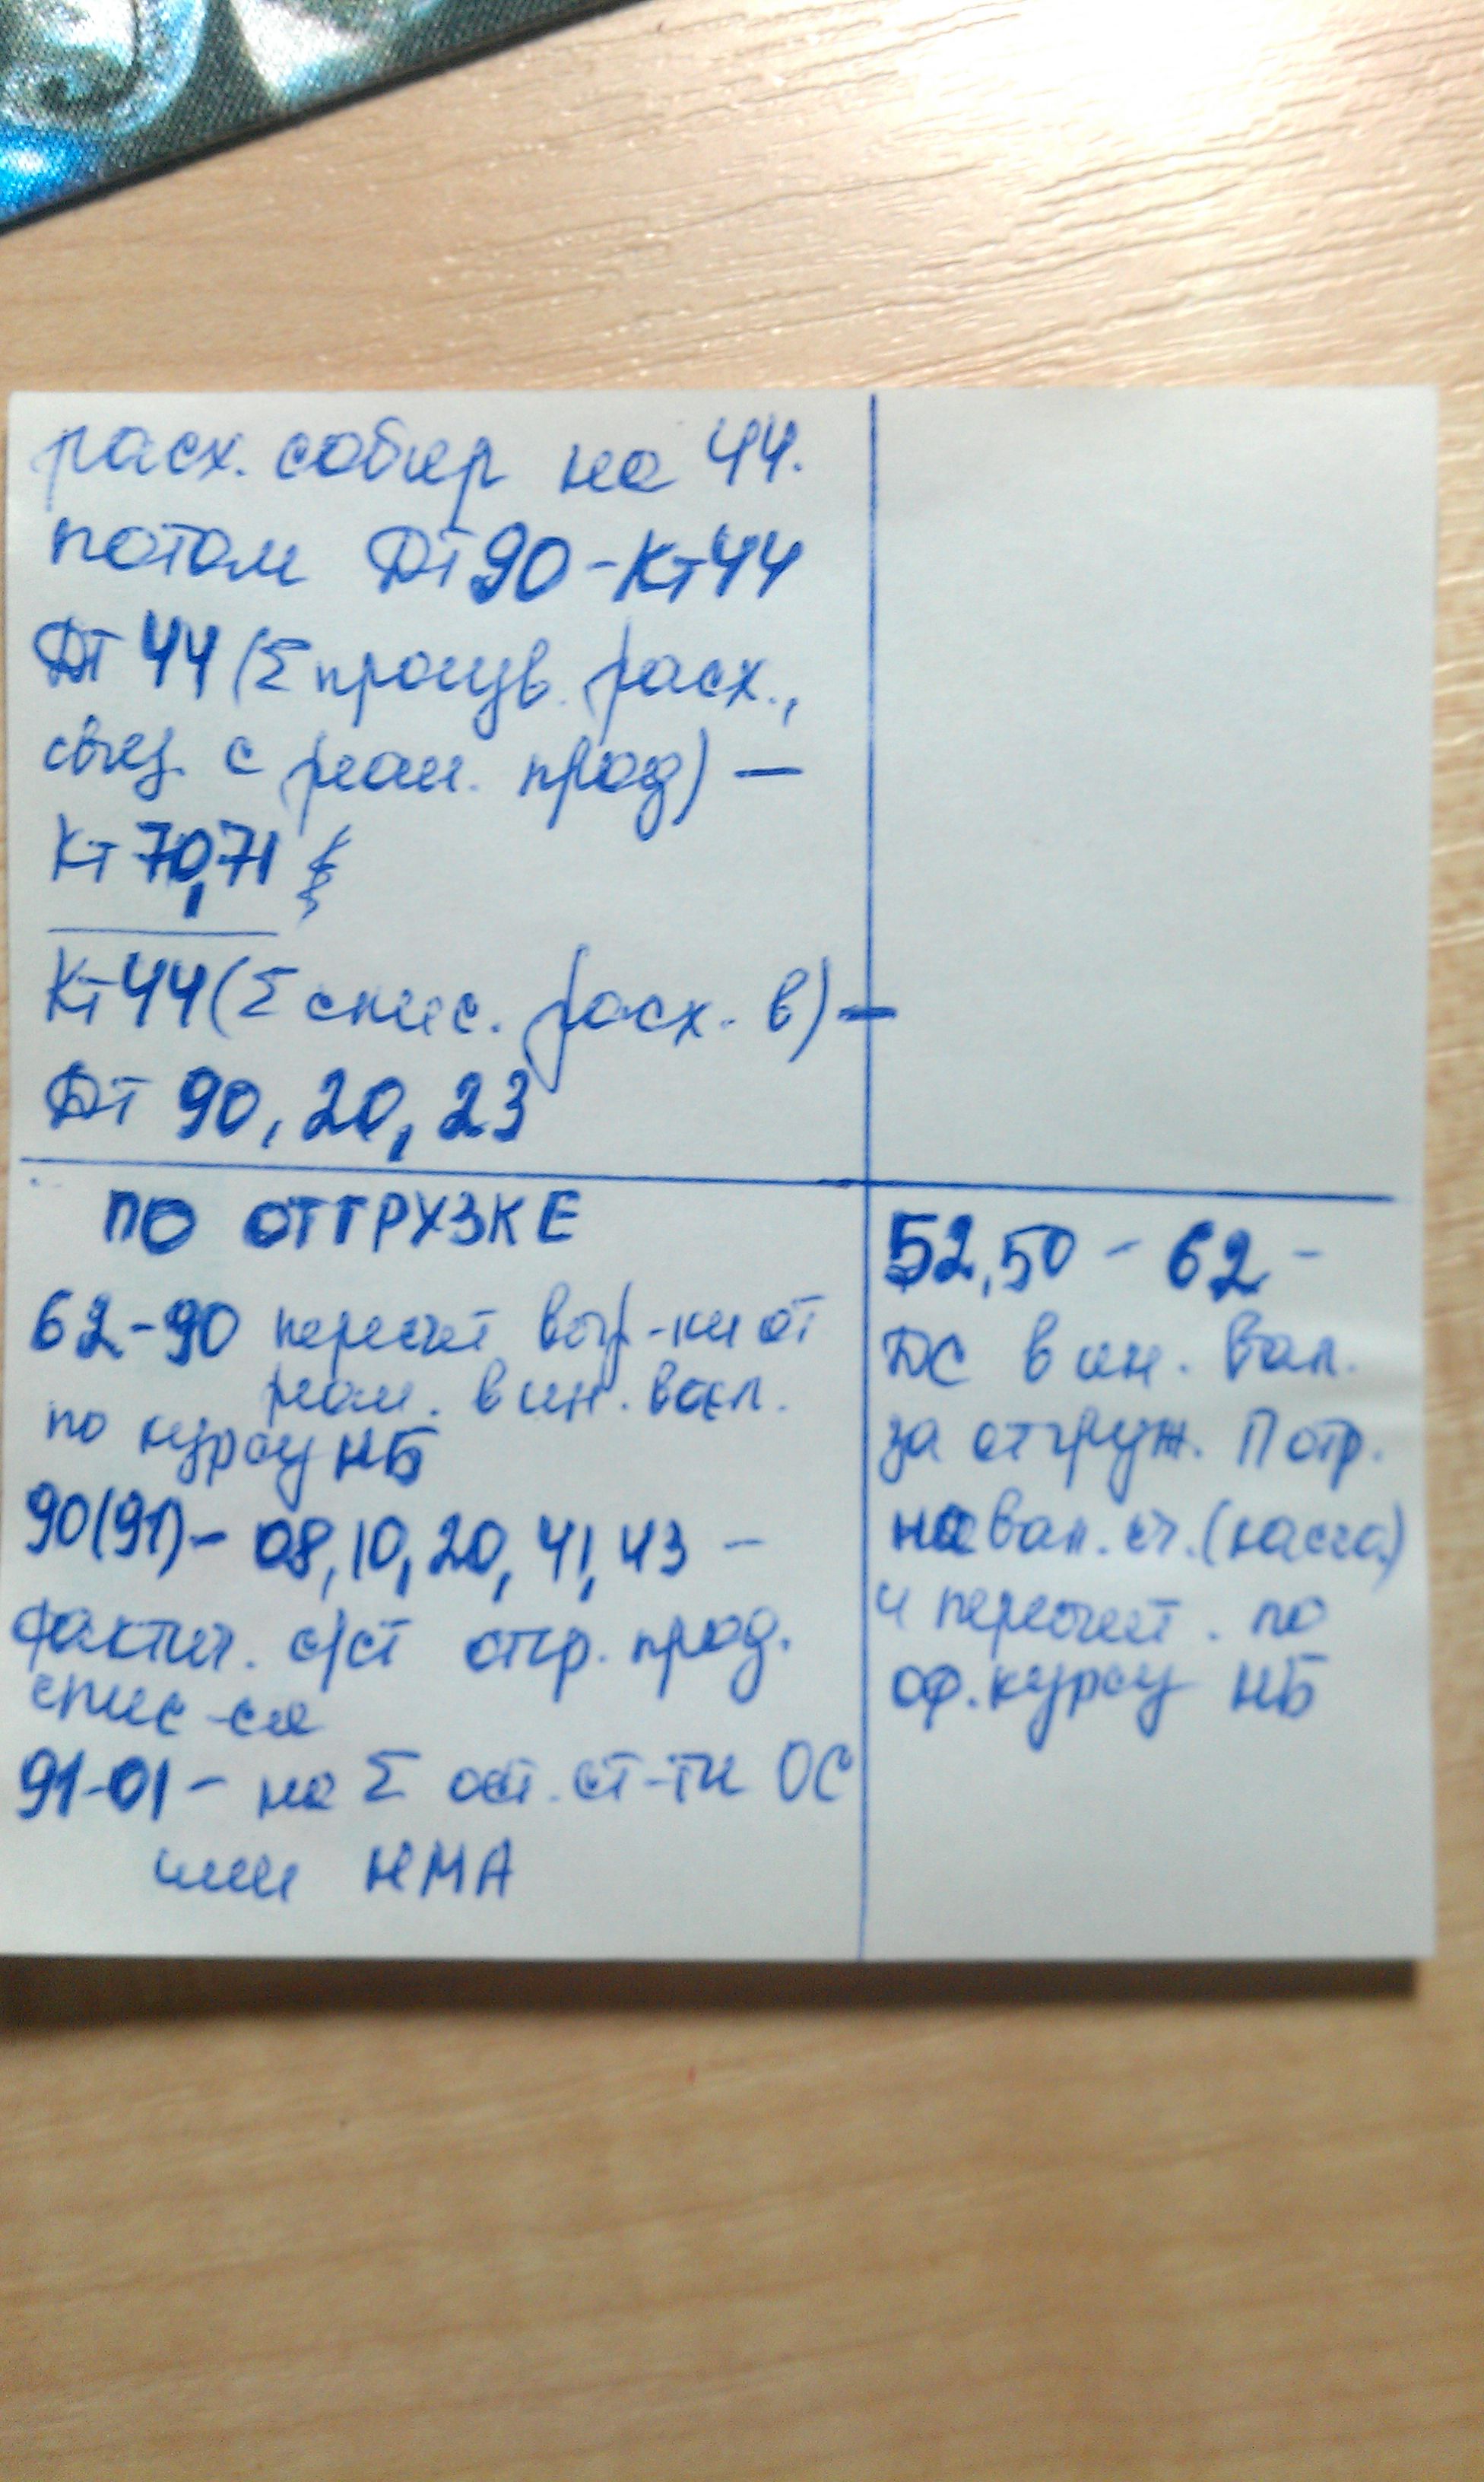 расх. собир на 44.
потом Дт 90 - Кт 44
Дт 44 (Σ произв. расх.,
связ. с реал. прод) —
Кт 70, 71
Кт 44 (Σ спис. расх. в) —
Дт 90, 20, 23
ПО ОТГРУЗКЕ
62-90 пересчет выр-ки от
реал. в ин. вал.
по курсу НБ
90(91) - 08, 10, 20, 41, 43 -
фактич. с/ст отгр. прод.
спис-ся
91-01 - на Σ ост. ст-ти ОС
или НМА
52, 50 - 62 -
ДС в ин. вал.
за отгруж. П отр.
на вал. сч. (касса)
и пересчет. по
оф. курсу НБ